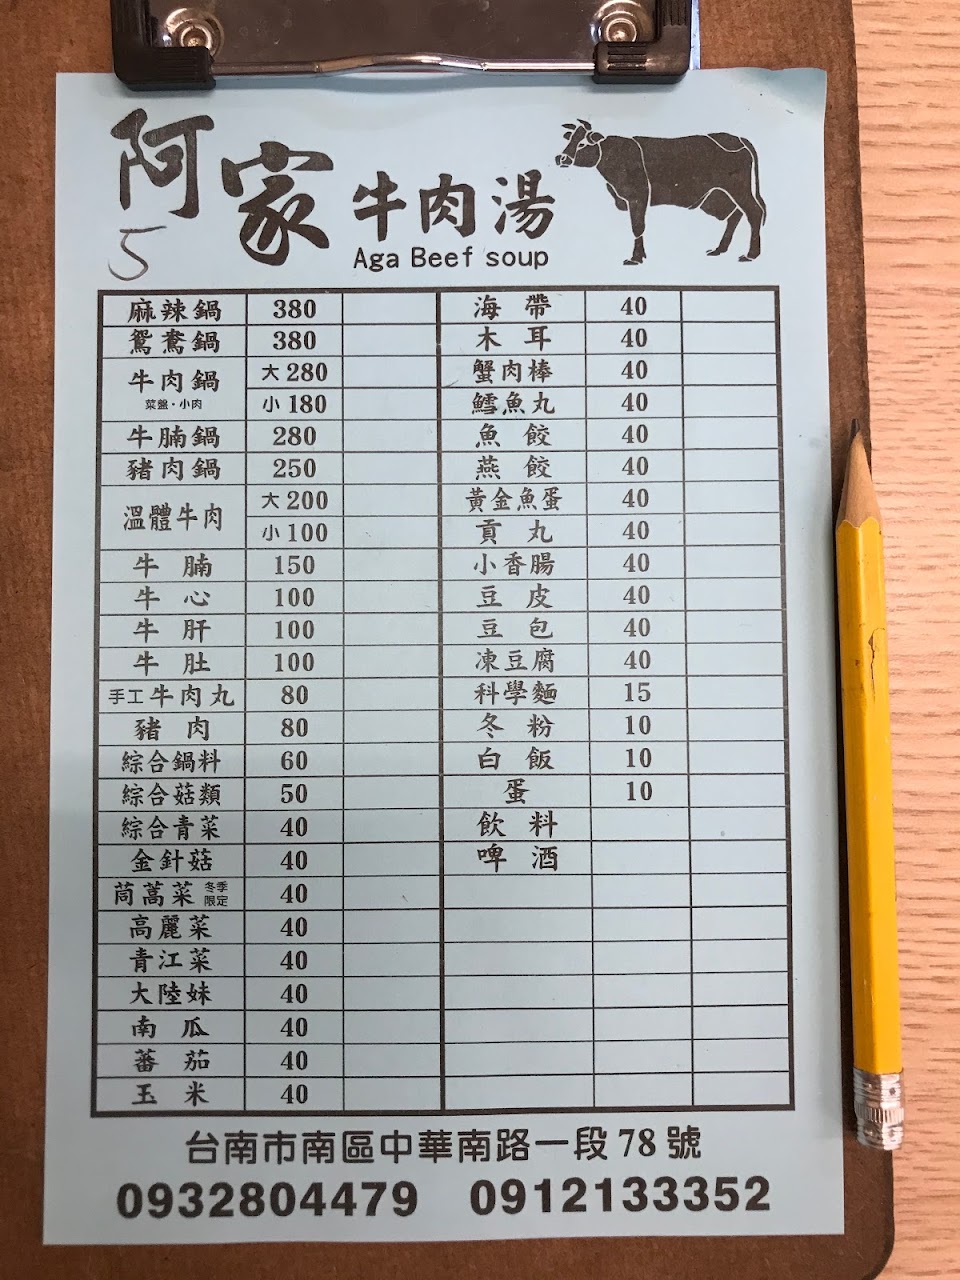 阿家牛肉湯
Aga Beef soup
5
麻辣鍋 380
鴛鴦鍋 380
牛肉鍋 大 280
菜盤·小肉 小 180
牛腩鍋 280
豬肉鍋 250
溫體牛肉 大 200
小 100
牛腩 150
牛心 100
牛肝 100
牛肚 100
手工牛肉丸 80
豬肉 80
綜合鍋料 60
綜合菇類 50
綜合青菜 40
金針菇 40
茼萵菜 冬季限定 40
高麗菜 40
青江菜 40
大陸妹 40
南瓜 40
蕃茄 40
玉米 40
海帶 40
木耳 40
蟹肉棒 40
鱈魚丸 40
魚餃 40
燕餃 40
黃金魚蛋 40
貢丸 40
小香腸 40
豆皮 40
豆包 40
凍豆腐 40
科學麵 15
冬粉 10
白飯 10
蛋 10
飲料
啤酒
台南市南區中華南路一段78號
0932804479 0912133352